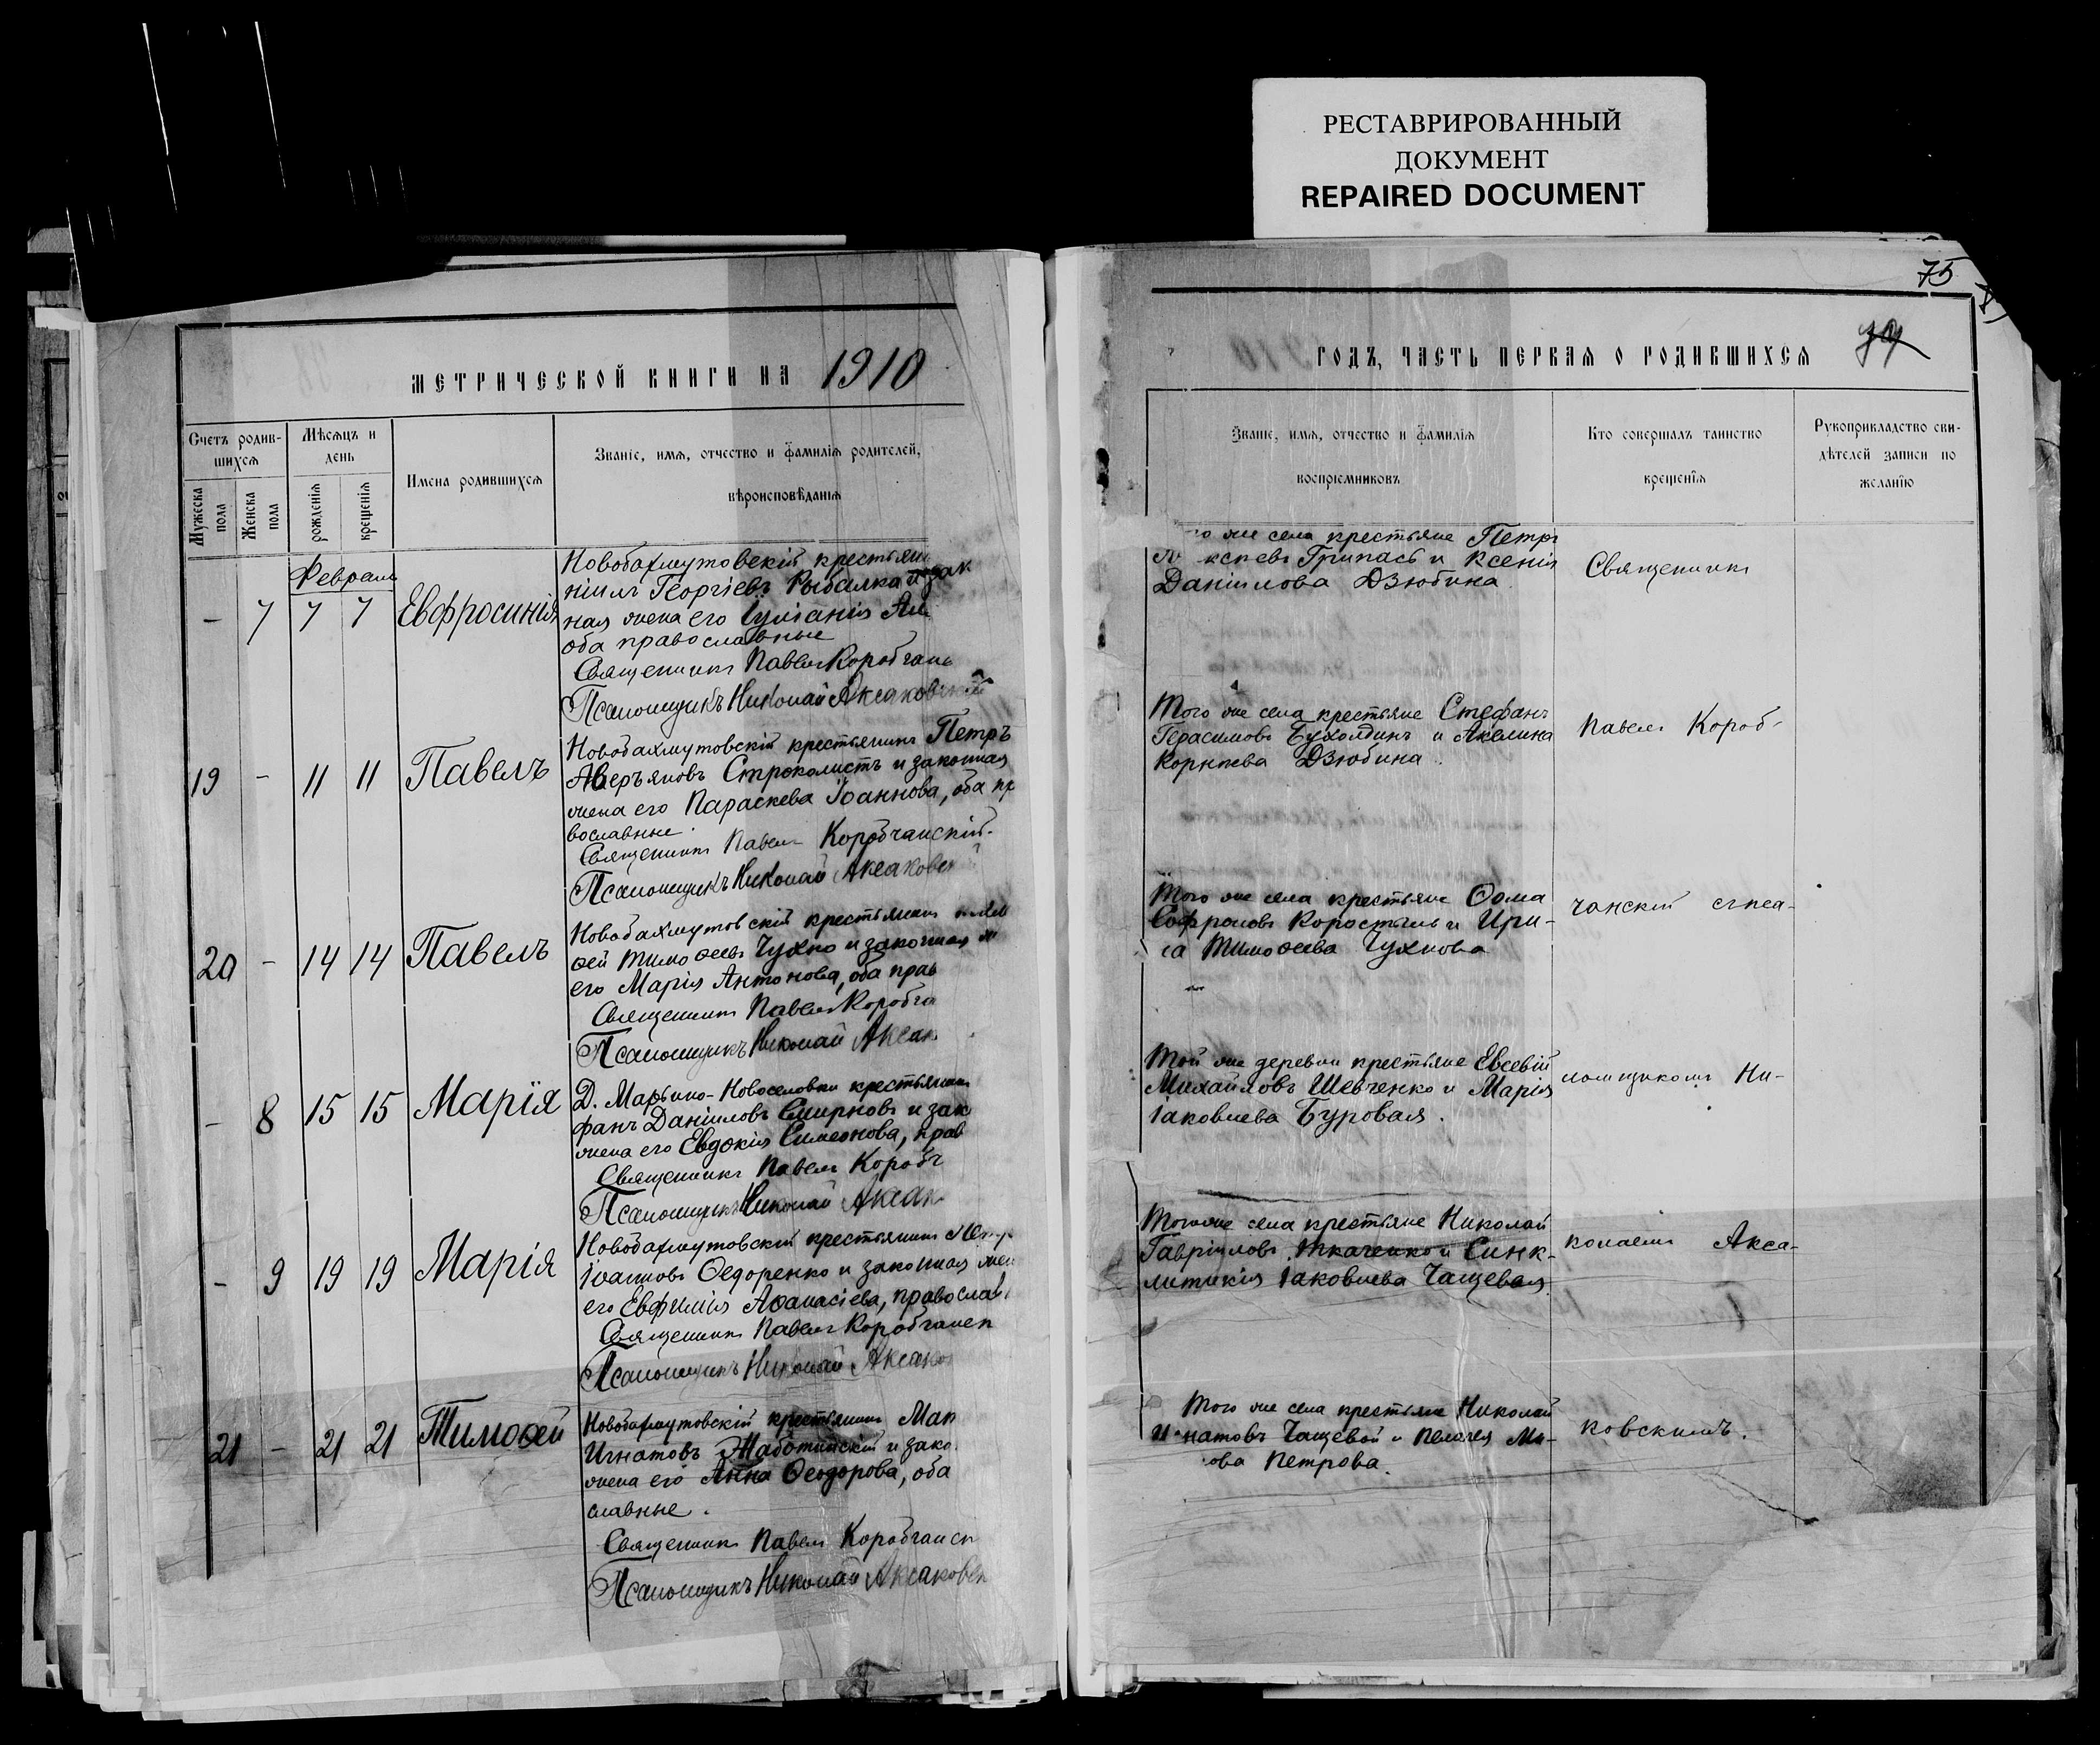 РЕСТАВРИРОВАННЫЙ
ДОКУМЕНТ
REPAIRED DOCUMENT
МЕТРИЧЕСКОЙ КНИГИ НА 1910
Счетъ родив-
шихся
Мѣсяцъ и
день
Имена родившихся
Званіе, имя, отчество и фамилія родителей,
вѣроисповѣданія
Мужеска
пола
Женска
пола
рожденія
крещенія
Февраль
- 7 7 7 Евфросинія
Новобахмутовскій крестьян
ніилъ Георгіевъ Рыбалка и зак
ная жена его Іуліанія
оба православные
Священникъ Павелъ Коробчанс
Псаломщикъ Николай Аксаковскій
19 - 11 11 Павелъ
Новобахмутовскій крестьянинъ Петръ
Аверьяновъ Строколистъ и законная
жена его Параскева Іоаннова, оба пр
вославные.
Священникъ Павелъ Коробчанскій.
Псаломщикъ Николай Аксаковск
20 - 14 14 Павелъ
Новобахмутовскій крестьянинъ
ѳей Тимоѳеевъ Чухно и законная ж
его Марія Антонова, оба прав
Священникъ Павелъ Коробча
Псаломщикъ Николай Аксак
- 8 15 15 Марія
Д. Марьино-Новоселовки крестьянинъ
фанъ Даніиловъ Смирновъ и зак
жена его Евдокія Симеонова, прав
Священникъ Павелъ Коробч
Псаломщикъ Николай Аксак
- 9 19 19 Марія
Новобахмутовскій крестьянинъ Петр
Іоанновъ Ѳедоренко и законная жен
его Евфимія Аѳанасіева, православ
Священникъ Павелъ Коробчанск
Псаломщикъ Николай Аксако
21 - 21 21 Тимоѳей
Новобахмутовскій крестьянинъ Мак
Игнатовъ Жаботинскій и зако
жена его Анна Ѳеодорова, оба
славные.
Священникъ Павелъ Коробчанск
Псаломщикъ Николай Аксаковск
75
79
ГОДЪ, ЧАСТЬ ПЕРВАЯ О РОДИВШИХСЯ
Званіе, имя, отчество и фамилія
воспріемниковъ
Кто совершалъ таинство
крещенія
Рукоприкладство сви-
дѣтелей записи по
желанію
го же села крестьяне Петръ
ксѣевъ Припасъ и Ксенія
Даніилова Дзюбина
Священникъ
Того же села крестьяне Стефанъ
Герасимовъ Бухолдинъ и Акелина
Корнѣева Дзюбина.
Павелъ Короб-
Того же села крестьяне Ѳома
Софроновъ Коростыль и Ири-
Тимоѳеева Чухнова
чанскій съ пса-
Той же деревни крестьяне Евсевій
Михайловъ Шевченко и Марія
Іаковлева Буровая.
ломщикомъ Ни-
Того же села крестьяне Николай
Гавріиловъ Ткаченко и Синк-
литикія Іаковлева Чащевая.
колаемъ Акса-
Того же села крестьяне Николай
натовъ Чащевой и Пелагея Ма-
ова Петрова.
ковскимъ.